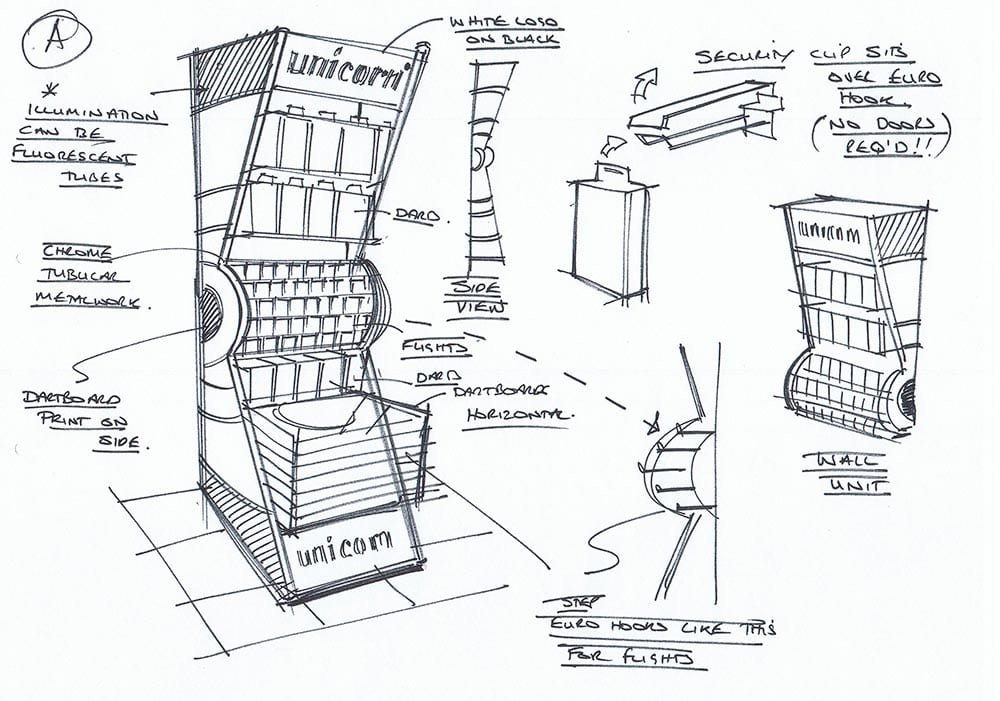 A
WHITE LOGO
ON BLACK
unicorn
*
ILLUMINATION
CAN BE
FLUORESCENT
TUBES
SECURITY CLIP SITS
OVER EURO
HOOK.
(NO DOORS
REQ'D!!)
DARD.
CHROME
TUBULAR
METALWORK.
SIDE
VIEW
unicorn
FLIGHTS
DARD
DARTBOARDS
HORIZONTAL.
DARTBOARD
PRINT ON
SIDE.
WALL
UNIT
unicorn
STEP
EURO HOOKS LIKE THIS
FOR FLIGHTS